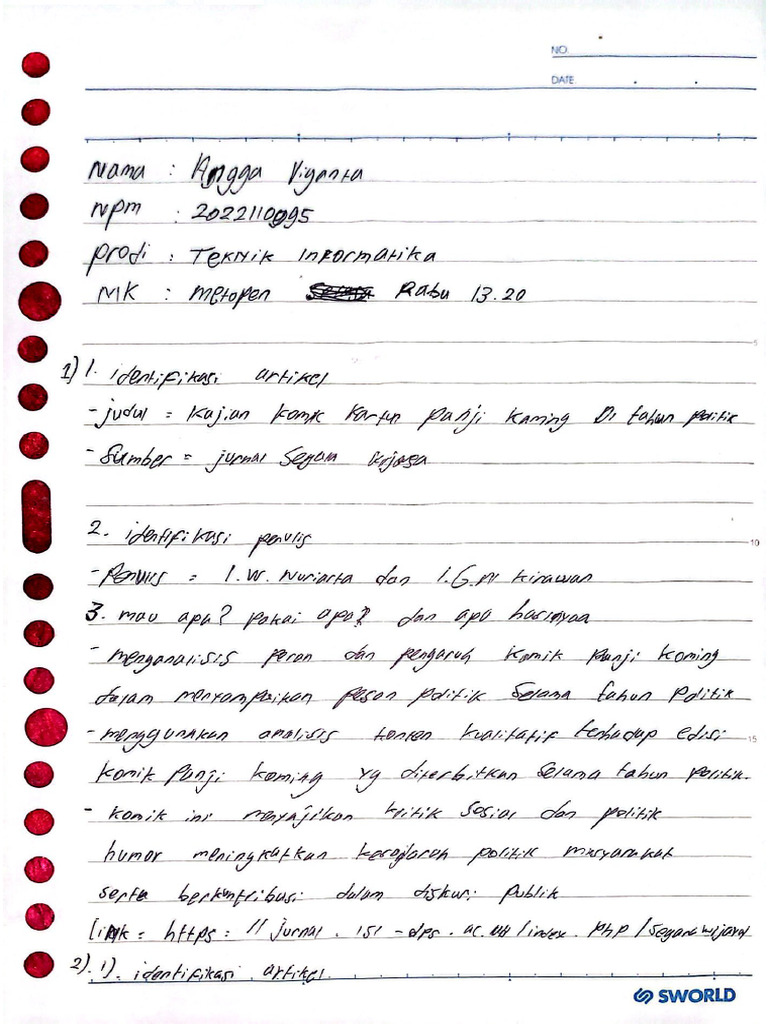 NO.
DATE
Nama : Angga Viganta
Npm : 2022110095
prodi : Teknik Informatika
MK : metopen Rabu 13.20
1) 1. identifikasi artikel
- judul = Kajian komik kartun panji koming Di tahun politik
- Sumber = jurnal Segara
2. identifikasi penulis
- Penulis = I.W. Nuriarta dan I.G.
3. mau apa? pakai apa? dan apa hasilnyaa
- menganalisis peran dan pengaruh komik panji koming
dalam menyampaikan pesan politik Selama tahun politik
- menggunakan analisis konten kualitatif terhadap edisi
komik panji koming yg diterbitkan Selama tahun politik.
- komik ini menyajikan kritik sosial dan politik
humor meningkatkan politik masyarakat
serta berkontribusi dalam diskusi publik
link = https = // jurnal . isi - dps . ac.
/ index . php /
2). 1). identifikasi artikel
5
10
15
SWORLD